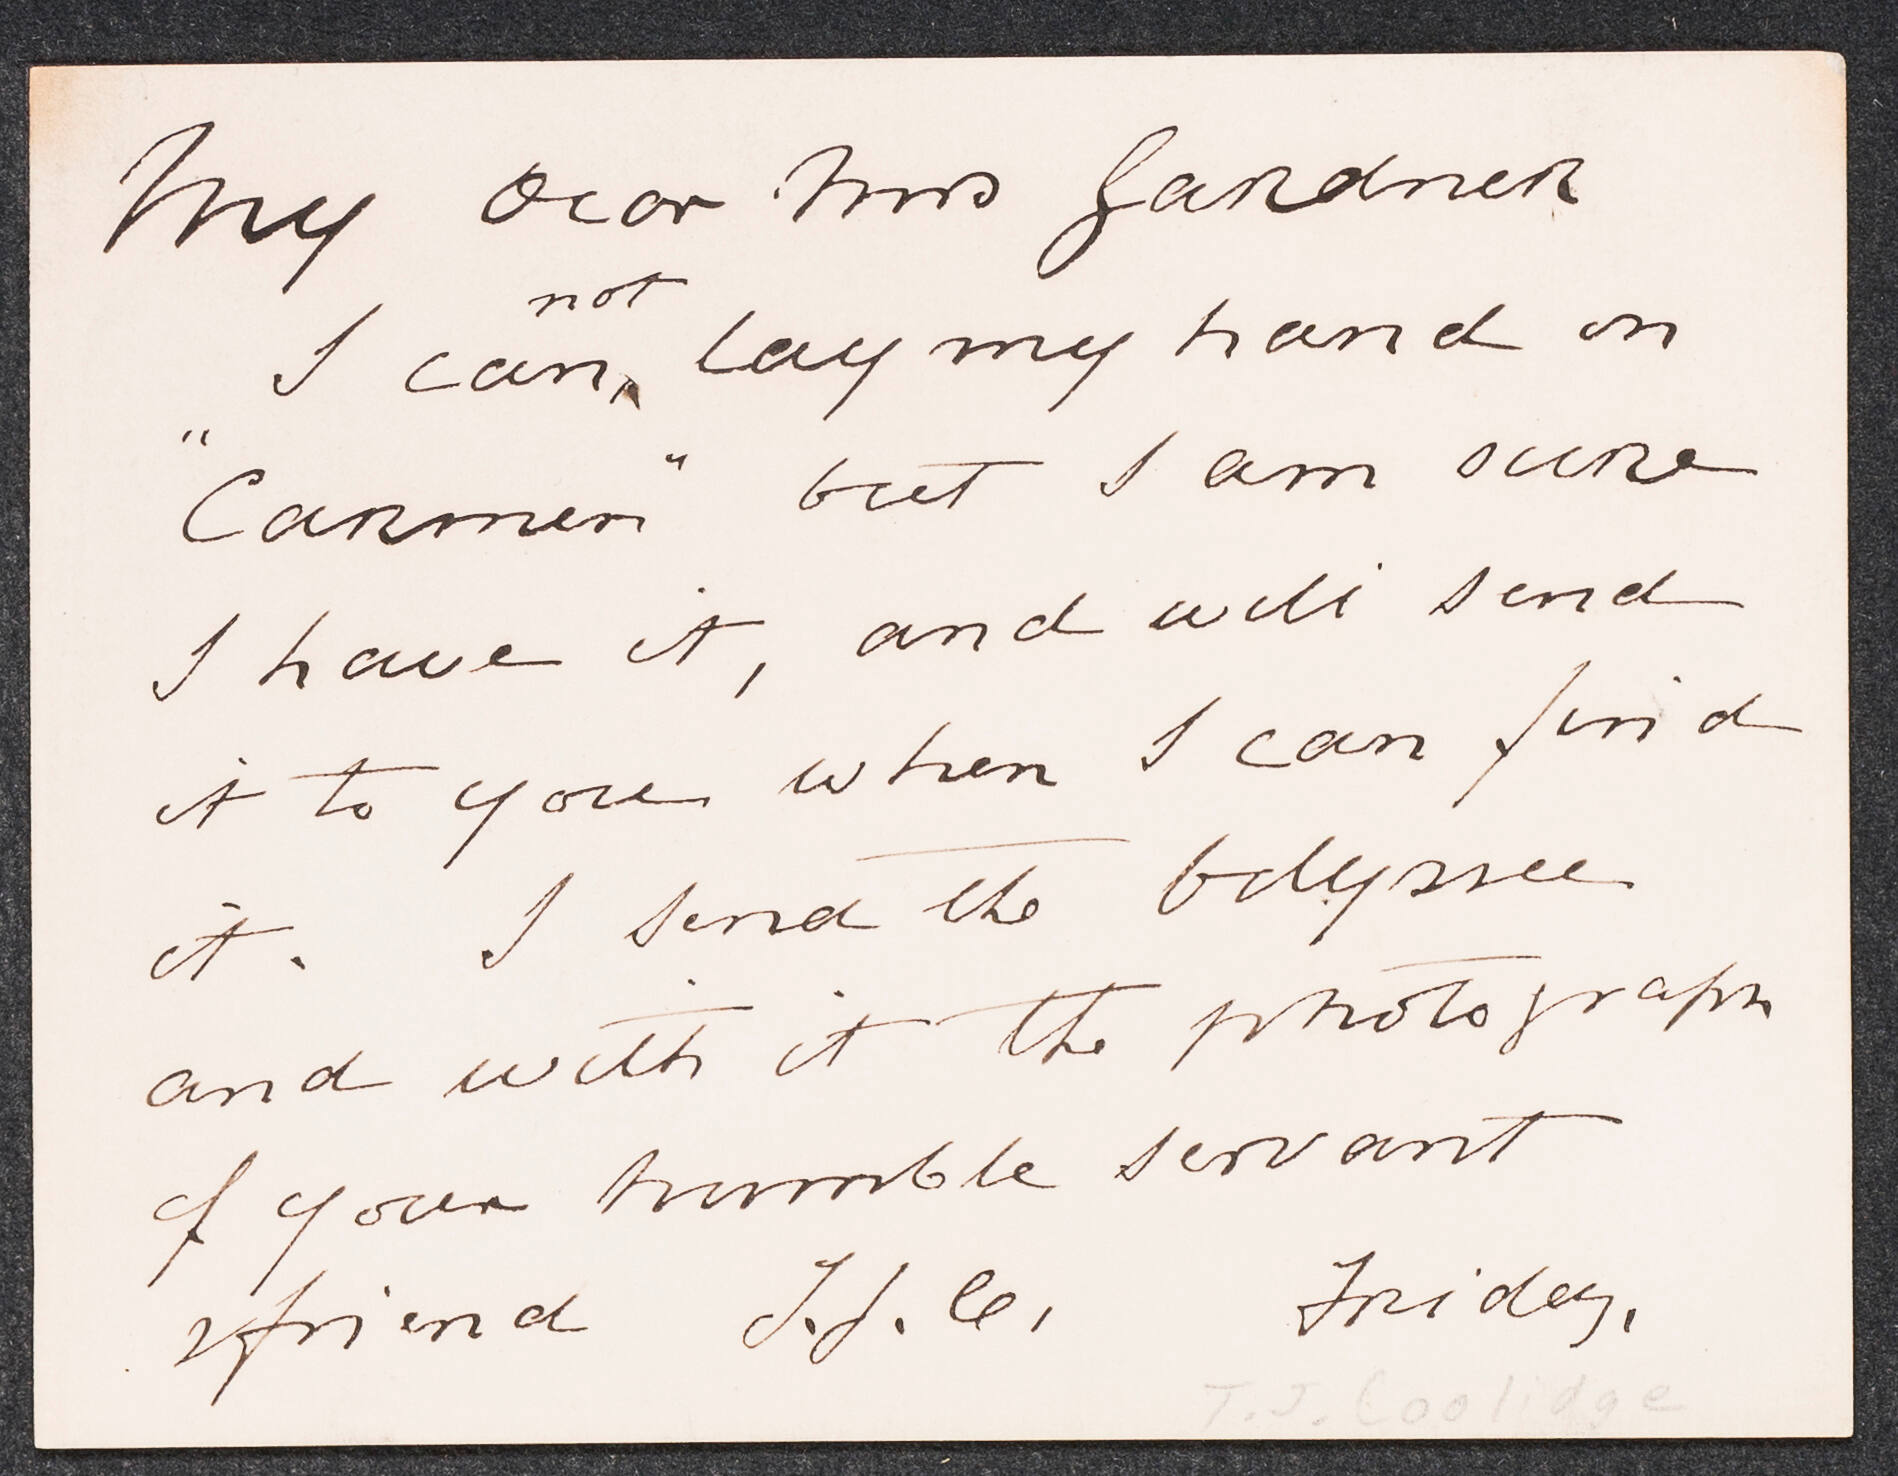 My dear Mrs Gardner
not
I can lay my hand on
"Carmen" but I am sure
I have it, and will send
it to you when I can find
it. I send the Odyssee
and with it the photograph
of your humble servant
& friend T.J.C. Friday.
T.J. Coolidge